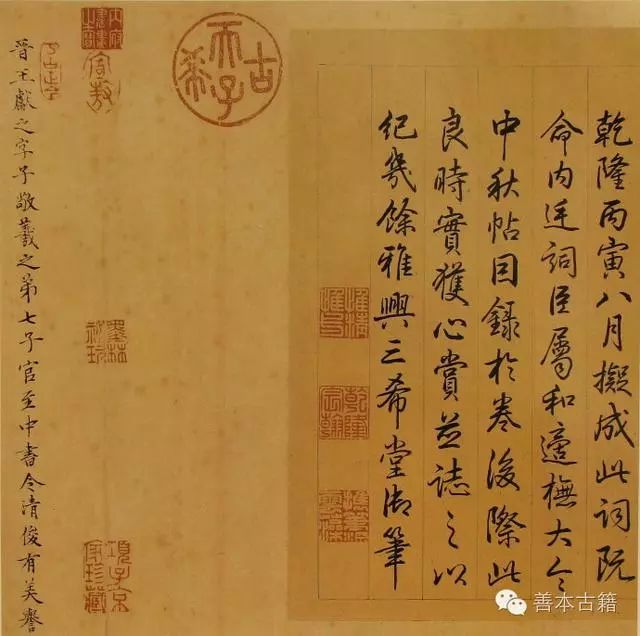 乾隆丙寅八月擬成此詞既
命内廷詞臣屬和適橅大令
中秋帖因錄於卷後際此
良時實獲心賞並誌之以
紀幾餘雅興三希堂御筆
乾隆宸翰
古希天子
墨林秘玩
項子京家珍藏
晉王獻之字子敬羲之第七子官至中書令清俊有美譽
善本古籍